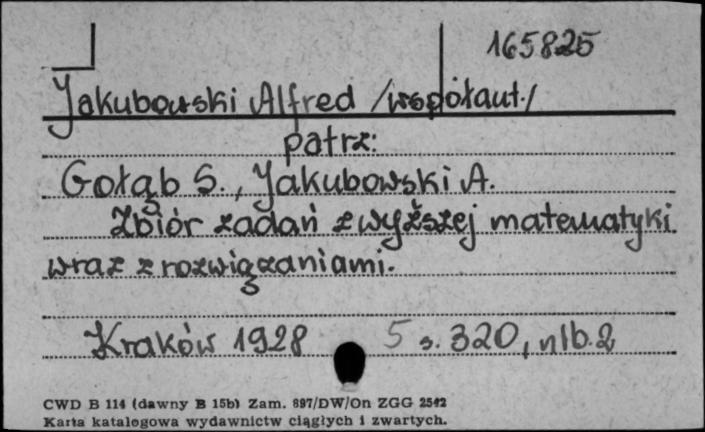 165825
Jakubowski Alfred /współaut./
patrz:
Gołąb S., Jakubowski A.
Zbiór zadań z wyższej matematyki
wraz z rozwiązaniami.
Kraków 1928 5 s. 320, nlb. 2
CWD B 114 (dawny B 15b) Zam. 897/DW/On ZGG 2542
Karta katalogowa wydawnictw ciągłych i zwartych.